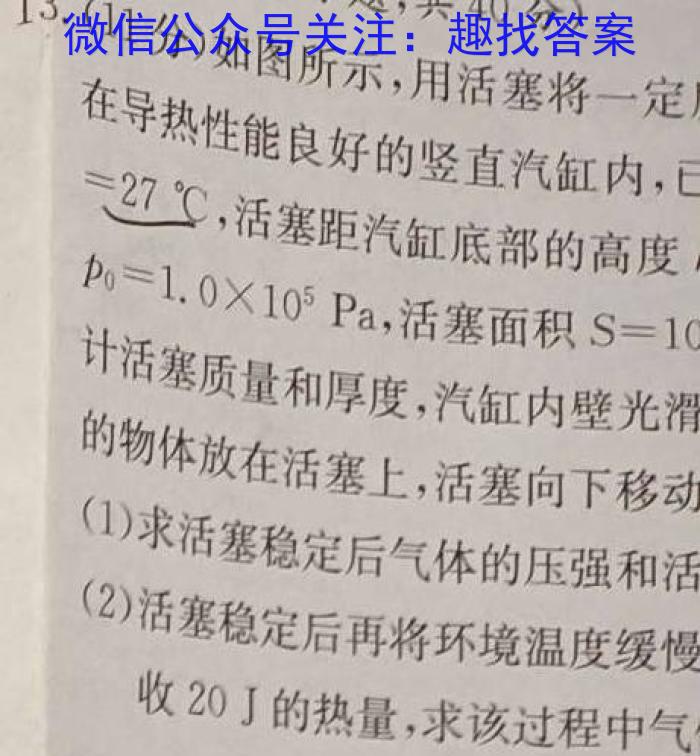 微信公众号关注：趣找答案
13.(11分)如图所示,用活塞将一定
在导热性能良好的竖直汽缸内,已
=27 ℃,活塞距汽缸底部的高度
p₀=1.0×10⁵ Pa,活塞面积 S=10
计活塞质量和厚度,汽缸内壁光滑
的物体放在活塞上,活塞向下移动
(1)求活塞稳定后气体的压强和活
(2)活塞稳定后再将环境温度缓慢
收 20 J 的热量,求该过程中气